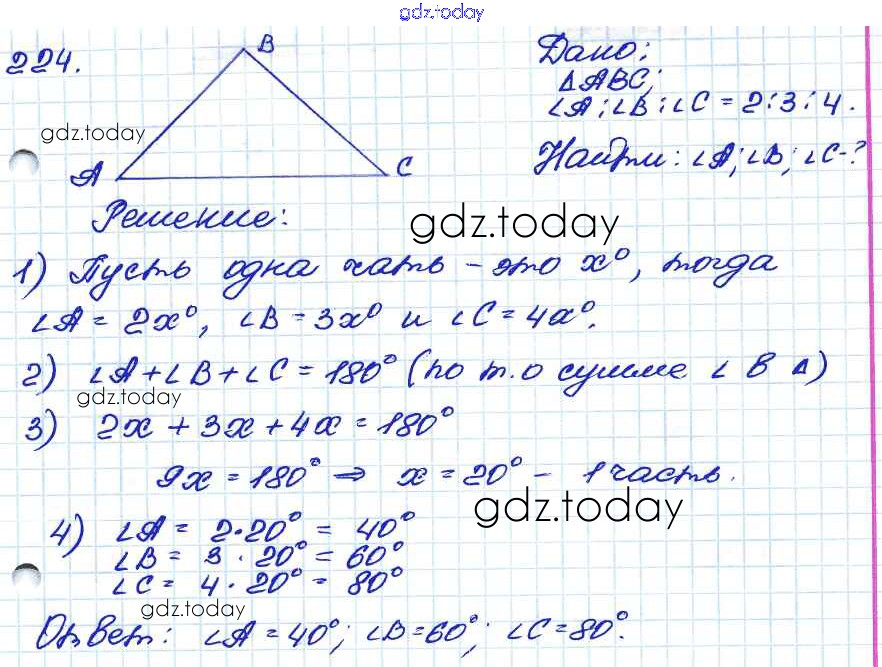 gdz.today
224.
B
A
C
gdz.today
Дано:
△ABC;
∠A:∠B:∠C = 2:3:4.
Найти: ∠A; ∠B; ∠C-?
Решение:
gdz.today
1) Пусть одна чать - это x°, тогда
∠A = 2x°, ∠B = 3x° и ∠C = 4x°.
2) ∠A+∠B+∠C = 180° (по т.о сумме ∠ в △)
gdz.today
3) 2x + 3x + 4x = 180°
9x = 180° ⇒ x = 20° - 1 часть.
gdz.today
4) ∠A = 2·20° = 40°
∠B = 3 · 20° = 60°
∠C = 4 · 20° = 80°
gdz.today
Ответ: ∠A = 40°; ∠B=60°; ∠C=80°.